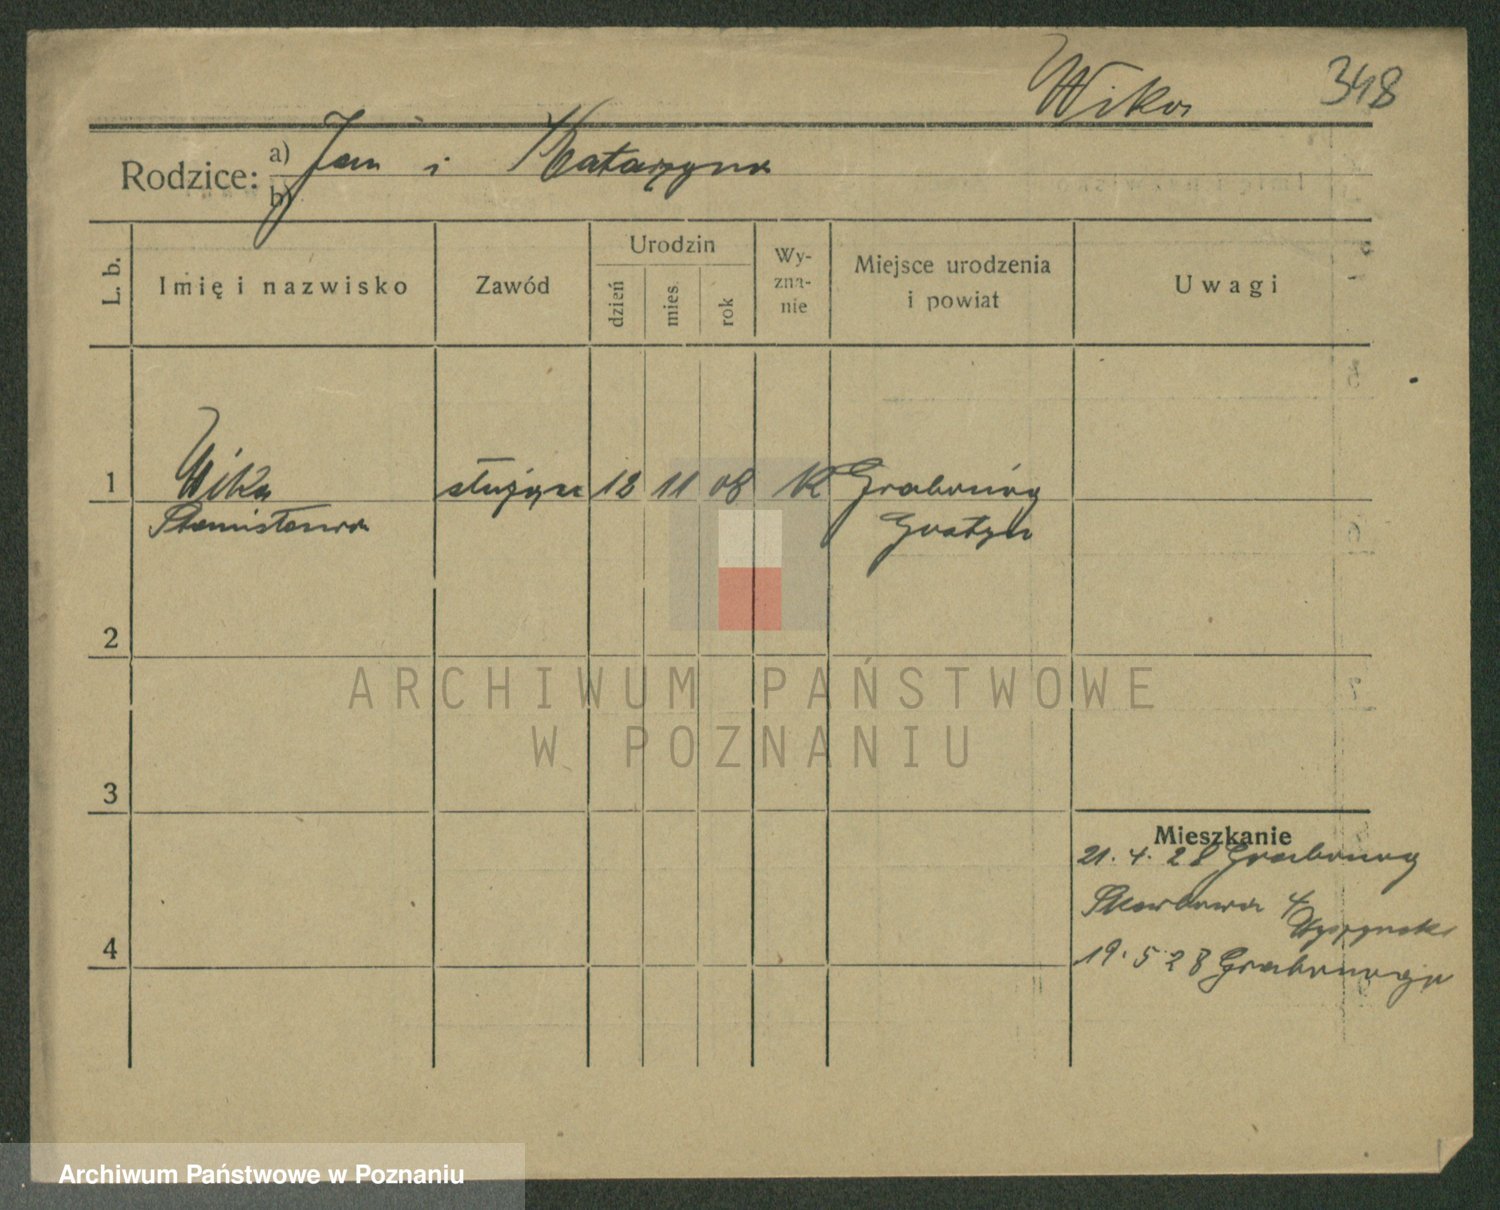 Wika 348
Rodzice: a) Jan i Katarzyna
b)
L. b. Imię i nazwisko Zawód Urodzin dzień mies. rok Wy-zna-nie Miejsce urodzenia i powiat Uwagi
1 Wika służąca 12 11 08 K Grabonóg
Stanisława Gostyń
2
ARCHIWUM PAŃSTWOWE
W POZNANIU
3
Mieszkanie
21. 4. 28 Grabonóg
Skarbowa 4
4 19. 5 28 Grabonoga
Archiwum Państwowe w Poznaniu